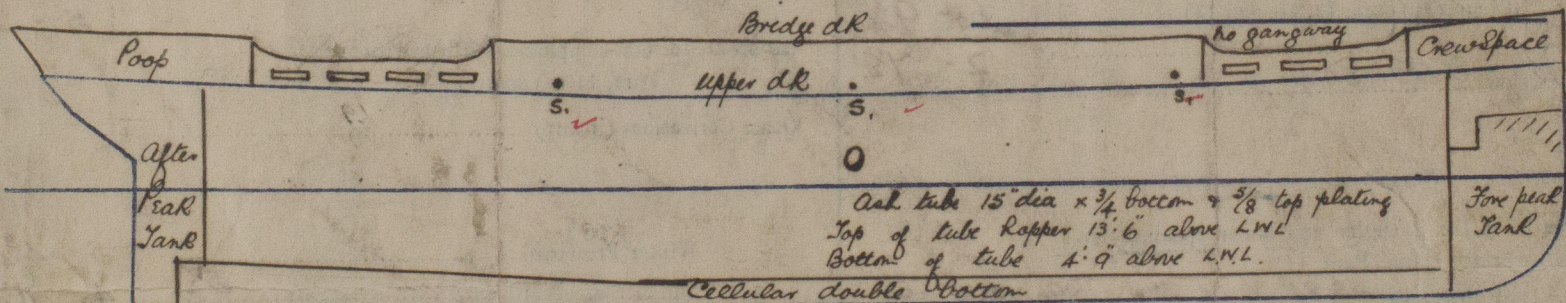 Bridge dk
Poop
no gangway
Crew Space
Upper dk
S.
S.
S.
After
Peak
Tank
Ash tube 15" dia × 3/4 bottom & 5/8 top plating
Top of tube hopper 13'.6" above L.W.L
Bottom of tube 4'.9" above L.W.L.
Fore peak
Tank
Cellular double bottom